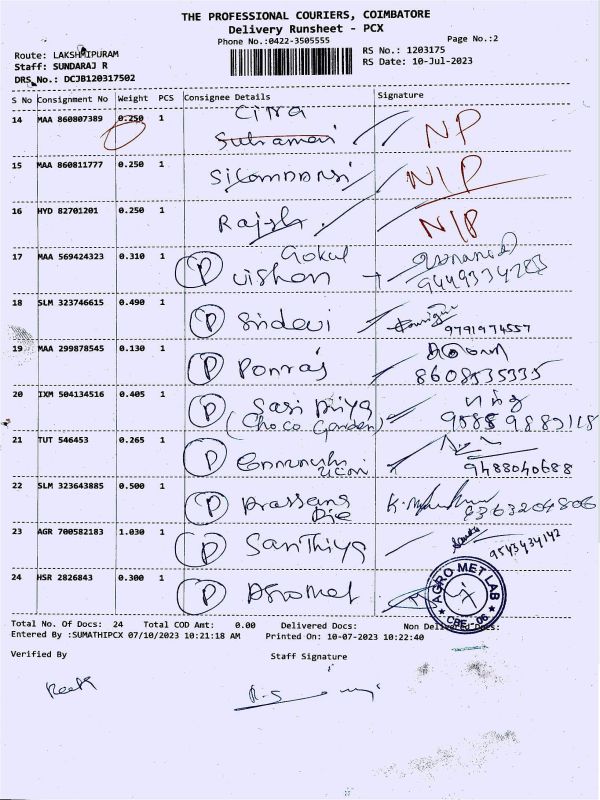 THE PROFESSIONAL COURIERS, COIMBATORE
Delivery Runsheet - PCX
Phone No.:0422-3505555
Page No.:2
Route: LAKSHMIPURAM
RS No.: 1203175
Staff: SUNDARAJ R
RS Date: 10-Jul-2023
DRS No.: DCJB120317502
S No Consignment No Weight PCS Consignee Details Signature
14 MAA 860807389 0.250 1 NP
15 MAA 860811777 0.250 1 N/P
16 HYD 82701201 0.250 1 N/P
17 MAA 569424323 0.310 1 P Gokul
18 SLM 323746615 0.490 1 P Sridevi
9791974557
19 MAA 299878545 0.130 1 P Ponraj
8608535335
20 IXM 504134516 0.405 1 P Sasi Priya
(Choco Garden)
21 TUT 546453 0.265 1 P
9488040688
22 SLM 323643885 0.500 1 P
9363204806
23 AGR 700582183 1.030 1 P Santhiya
9543434142
24 HSR 2826843 0.300 1 P Agromet
AGRO MET LAB
CBE - 06
Total No. Of Docs: 24 Total COD Amt: 0.00 Delivered Docs: Non Delivered Docs:
Entered By :SUMATHIPCX 07/10/2023 10:21:18 AM Printed On: 10-07-2023 10:22:40
Verified By Staff Signature